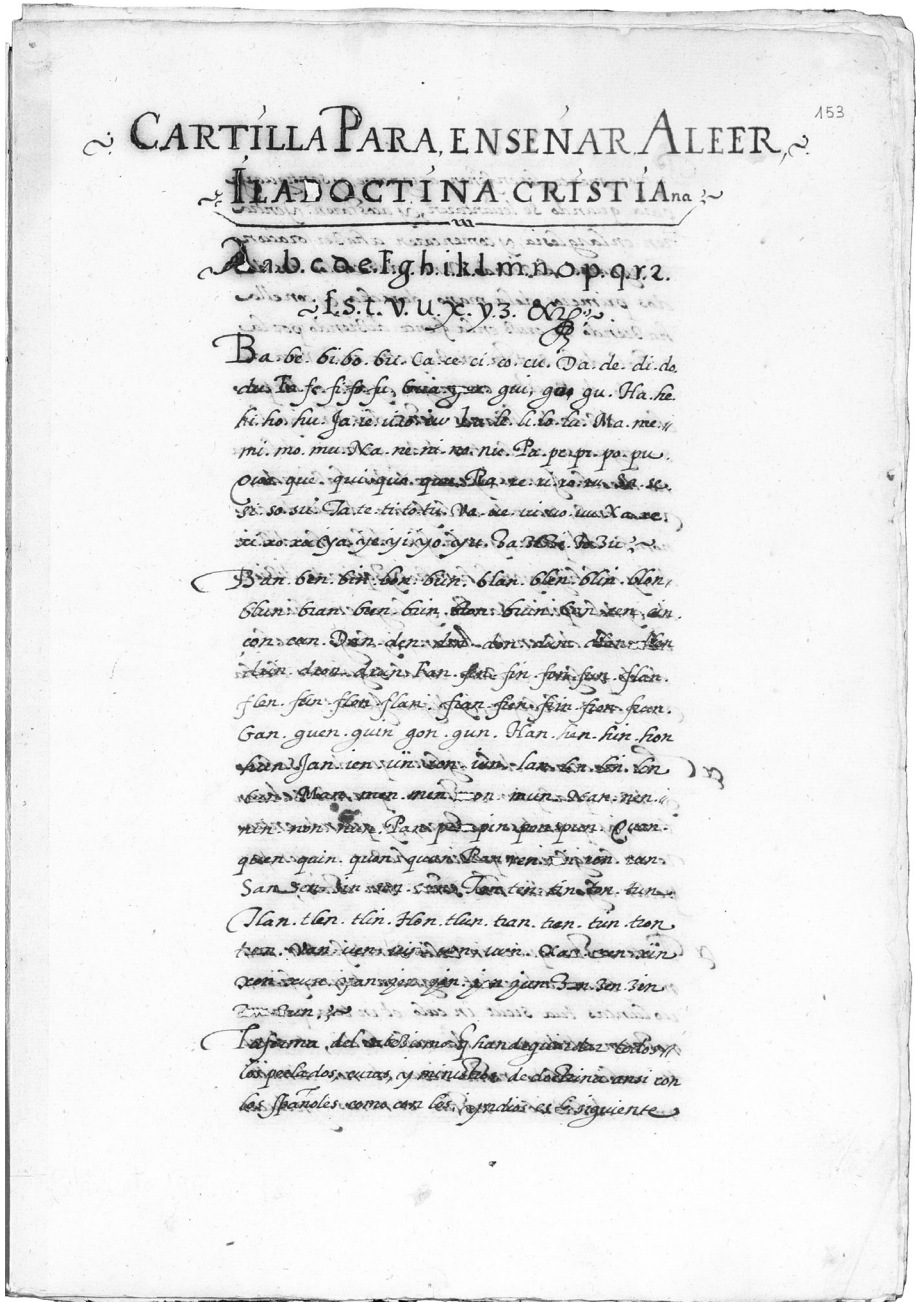 153
CARTÍLLA PARA, ENSEÑAR A LEER,
Í LA DOCTÍNA CRÍSTÍAna
A.a.b.c.d.e.f.g.h.i.k.l.m.n.o.p.q.r.2.
ſ.s.t.v.u.x.y.3. &
Ba. be. bi. bo. bu. Ca. ce. ci. co. cu. Da. de. di. do.
du. Fa. fe. fi. fo. fu, gui, gu. Ha. he.
hi. ho. hu. Ja. ie. La. le. li. lo. lu. Ma. me.
mi. mo. mu. Na. ne. ni. no. nu. Pa. pe. pi. po. pu.
que. qui. quo. qua. Ra. re. ri. ro. ru. Sa. se.
si. so. su. Ta. te. ti. to. tu. Va. ve. vi. vo. vu. Xa. xe.
xi. xo. xu. Ya. ye. yi. yo. yu. 3a.
Ban. ben. bin. bon. bun. blan. blen. blin. blon.
blun. brin. bron. brun. Can. cen. cin.
con. cun. Dan. den. don. dun.
Fan. fen. fin. fon. fun. flan.
flen. flin. flon. flun.
Gan. guen. guin gon. gun. Han. hen. hin. hon
hun. Jan. ien. iin. ion. iun. lan. len. lin. lon
Man. men. min. mun. Nan. nen.
nin. non. nun. Pan. pen. pin. pon. pun. Quan.
quen. quin. quon. quun. Ran. ren. rin. ron. run.
San. sen. sin. son. sun. Tan. ten. tin. ton. tun.
Tlan. tlen. tlin. tlon. tlun. tran. tren. trin. tron
trun. Van. ven. vin. von. vun. Xan. xen. xin
xon. xun. yan. yen. yin. yun. 3an. 3en. 3in
3un.
La forma del cabezismo q̃ han de guardar todos
los prelados, curas, y ministros de doctrina ansi con
los Españoles como con los yndios es la siguiente